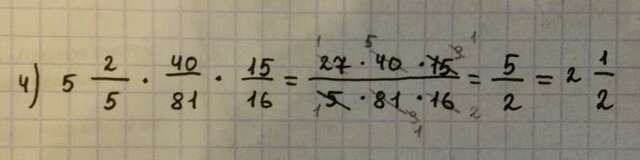 4) 5 2/5 · 40/81 · 15/16 = (27 · 40 · 15)/(5 · 81 · 16) = 5/2 = 2 1/2